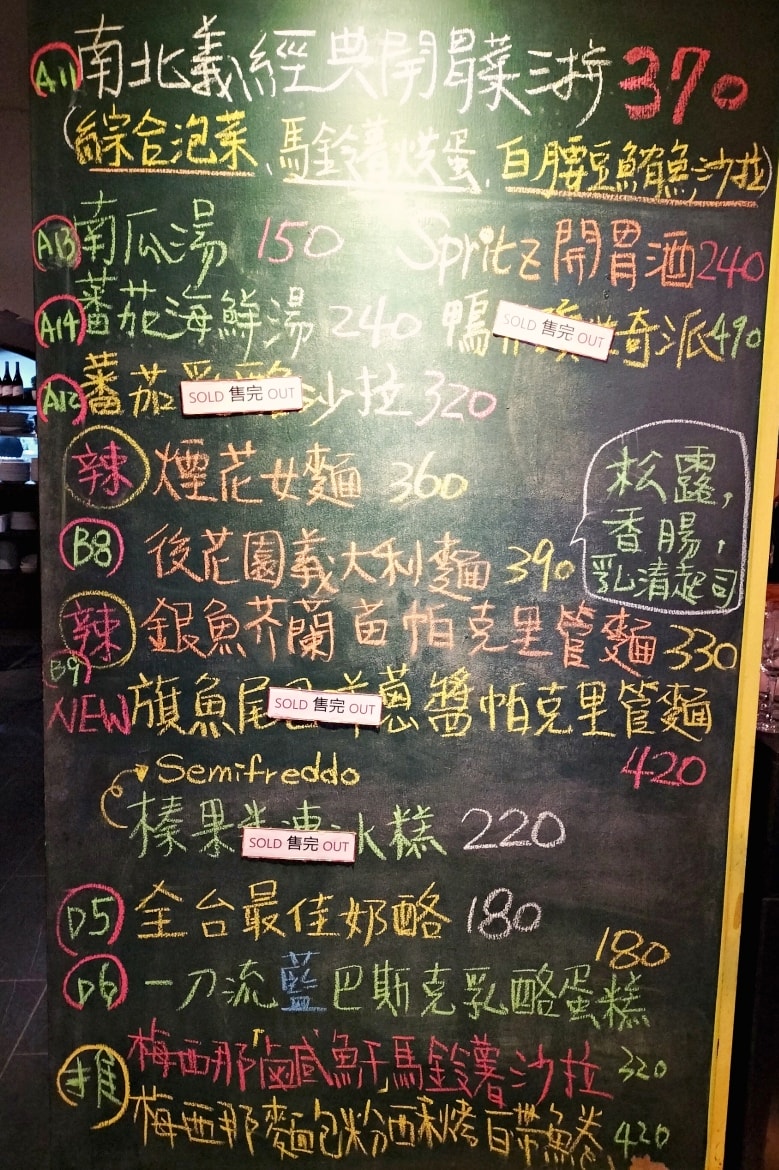 A11 南北義經典開胃菜三拚 370
(綜合泡菜、馬鈴薯烘蛋、白腰豆鮪魚沙拉)
A13 南瓜湯 150 Spritz開胃酒 240
A14 蕃茄海鮮湯 240 鴨 SOLD 售完 OUT 奇派 490
A12 蕃茄 SOLD 售完 OUT 沙拉 320
辣 煙花女麵 360
松露,
香腸,
乳清起司
B8 後花園義大利麵 390
辣 銀魚芥蘭苗帕克里管麵 330
B9
NEW 旗魚尾 SOLD 售完 OUT 蔥醬帕克里管麵
420
Semifreddo
榛果 SOLD 售完 OUT 冰糕 220
D5 全台最佳奶酪 180
180
D6 一刀流藍巴斯克乳酪蛋糕
推 梅西那鹹魚干馬鈴薯沙拉 320
梅西那麵包粉西利烤白帶魚卷 420